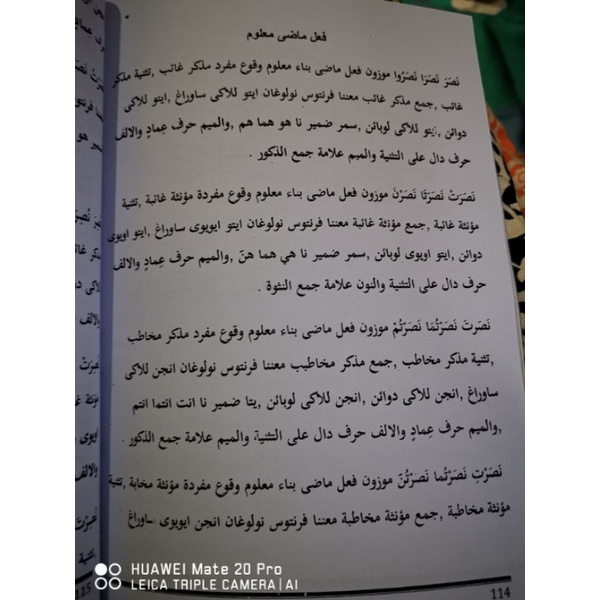 فعل ماضى معلوم
نَصَرَ نَصَرَا نَصَرُوا موزون فعل ماضى بناء معلوم وقوع مفرد مذكر غائب ,تثنية مذكر
غائب ,جمع مذكر غائب معننا فرنتوس نولوغان ايتو للاكى ساوراغ ,ايتو للاكى
دوائن ,يتو للاكى لوبائن ,سمر ضمير نا هو هما هم ,والميم حرف عِمادٍ والالف
حرف دال على التثنية والميم علامة جمع الذكور .
نَصَرَتْ نَصَرَتَا نَصَرْنَ موزون فعل ماضى بناء معلوم وقوع مفردة مؤنثة غائبة ,تثنية
مؤنثة غائبة ,جمع مؤنثة غائبة معننا فرنتوس نولوغان ايتو ايويوى ساوراغ ,ايتو اويوى
دوائن ,ايتو اويوى لوبائن ,سمر ضمير نا هي هما هنّ ,والميم حرف عِمادٍ والالف
حرف دال على التثنية والنون علامة جمع النثوة .
نَصَرَتَ نَصَرْتُمَا نَصَرْتُمْ موزون فعل ماضى بناء معلوم وقوع مفرد مذكر مخاطب
,تثنية مذكر مخاطب ,جمع مذكر مخاطيب معننا فرنتوس نولوغان انجن للاكى
ساوراغ ,انجن للاكى دوائن ,انجن للاكى لوبائن ,يتا ضمير نا انت انتما انتم
,والميم حرف عِمادٍ والالف حرف دال على التثنية والميم علامة جمع الذكور .
نَصَرْتِ نَصَرْتُما نَصَرْتُنّ موزون فعل ماضى بناء معلوم وقوع مفردة مؤنثة مخابة ,تثنية
مؤنثة مخاطبة ,جمع مؤنثة مخاطبة معننا فرنتوس نولوغان انجن ايويوى ساوراغ
114
115
HUAWEI Mate 20 Pro
LEICA TRIPLE CAMERA | AI